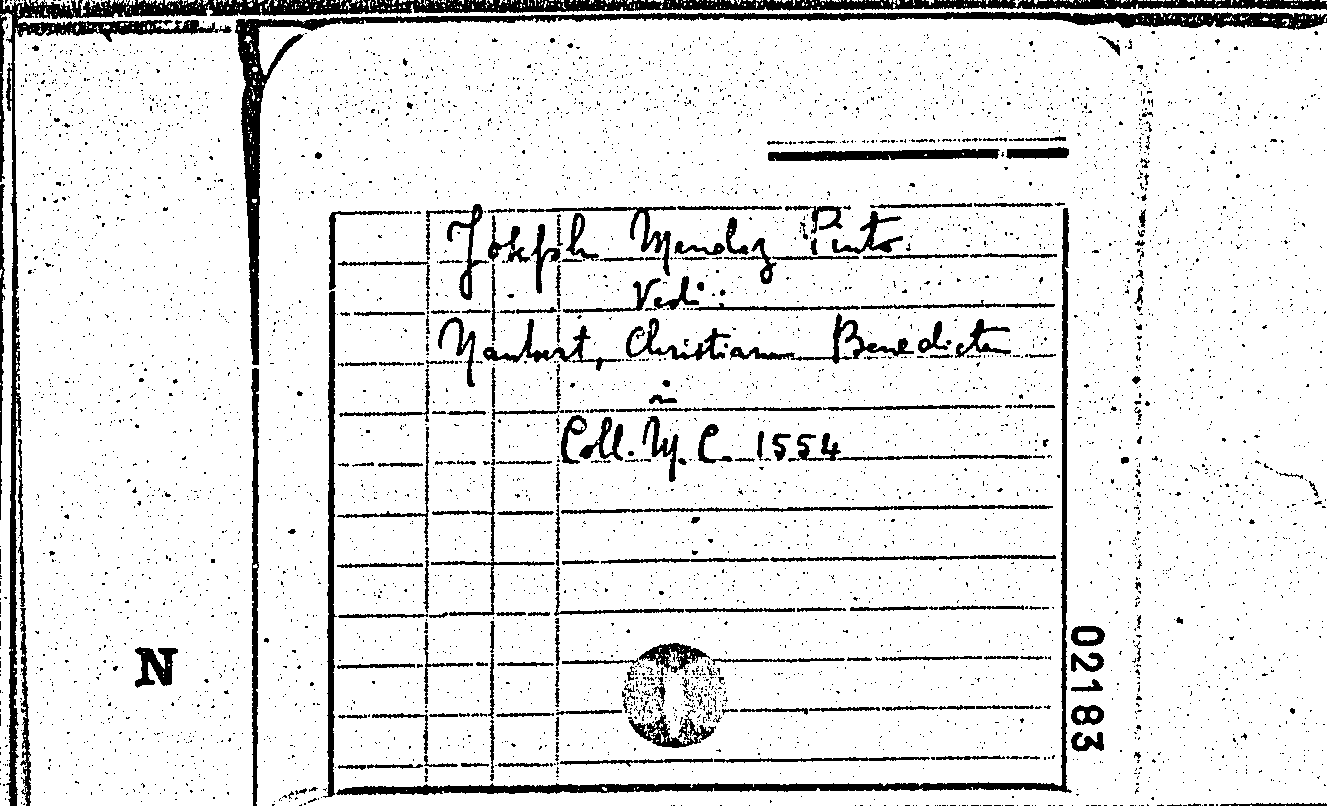 Joseph Mendez Pinto
Vedi:
Naubert, Christiane Benedicte
in
Coll. M. C. 1554
N
02183